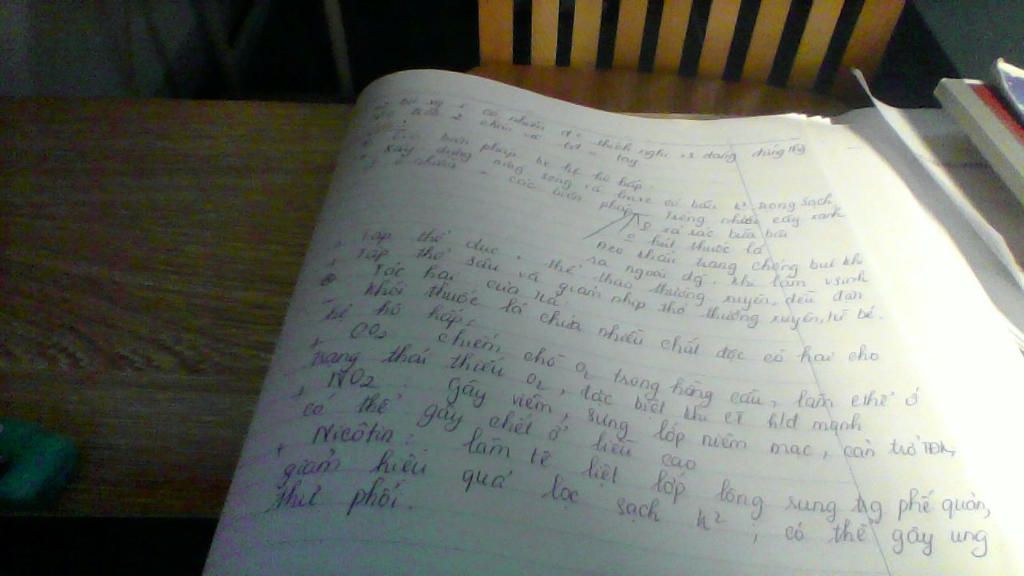 có nhiều đ² thích nghi vs dáng đứng thg
2 chân và tay
biện pháp bv hệ hô hấp
Xây dựng sống và trong có bầu k² trong sạch
các biện pháp Trồng nhiều cây xanh
xả rác bừa bãi
hút thuốc lá
đeo khẩu trang chống bụi khi
ra ngoài đg, khi làm vsinh
+ Tập thể dục, thể thao thường xuyên, đều đặn
+ Tập thở sâu và giảm nhịp thở thường xuyên, từ bé.
Tác hại của
- Khói thuốc lá chứa nhiều chất độc có hại cho
hệ hô hấp:
+ CO₂ chiếm chỗ O₂ trong hồng cầu, làm cthể ở
trạng thái thiếu O₂, đặc biệt khi ct hđ mạnh
+ NO₂: Gây viêm, sưng lớp niêm mạc, cản trở TĐK,
có thể gây chết ở liều cao
+ Nicôtin: làm tê liệt lớp lông rung tg phế quản,
giảm hiệu quả lọc sạch k²; có thể gây ung
thư phổi.